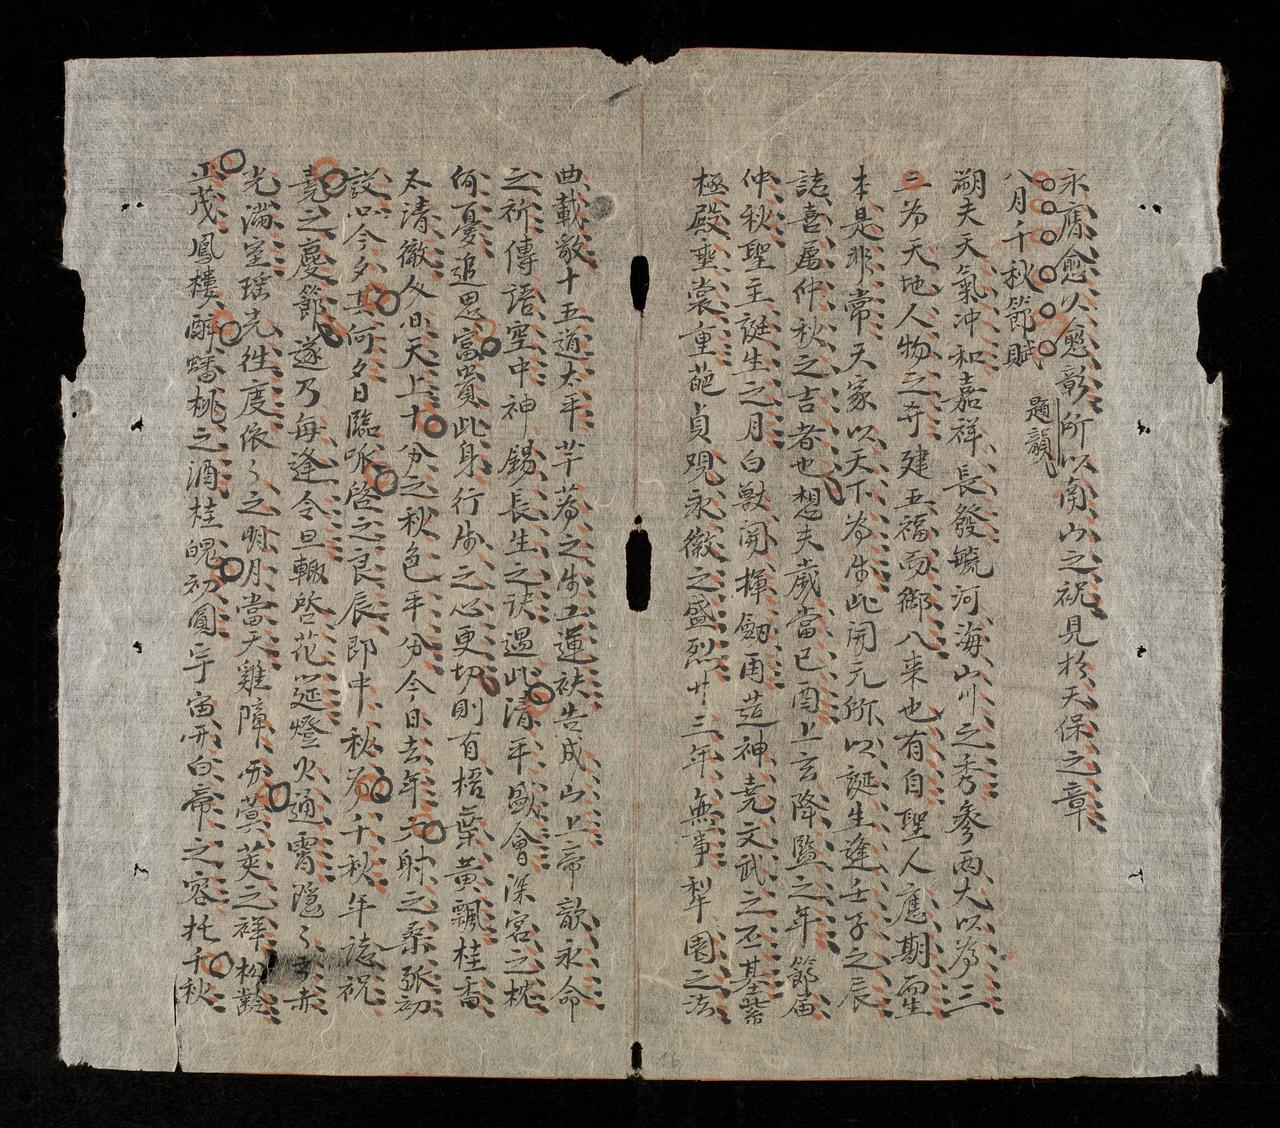 永膺愈久愈彰所以南山之祝見於天保之章
八月千秋節賦 題韻
溯夫天氣冲和嘉祥長發毓河海山川之秀參兩大以為三
二為天地人物之奇建五福而御八来也有自聖人應期而生
本是非常天家以天下為此開元所以誕生逢壬子之辰
誌喜屬仲秋之吉者也想夫歲當己酉上玄降監之年節届
仲秋聖主誕生之月白獸開樽劒甬造神堯文武之丕基紫
極殿垂裳重葩貞观永徽之盛烈廿三年無事犁園之法
曲載敬十五道太平芊蒍之運祑告成山上帝歆永命
之祈傳語空中神錫長生之訣遇此清平歐會深宮之枕
何憂追思富貴此身行之心更切則有梧葉黄飄桂香
太清徹夜天上十分之秋色平分今日去年之射之桑弧初
設以今夕其何夕日臨啓之良辰即中秋為千秋年誌祝
堯之慶節遂乃每逢令旦輙啓花筵燈火通霄隱〻赤
光滿室瑶光徃度依〻之明月當天雞障蓂莢之祥松齡
正茂鳳樓醉蟠桃之酒桂魄初圓宇宙開白帝之容托千秋